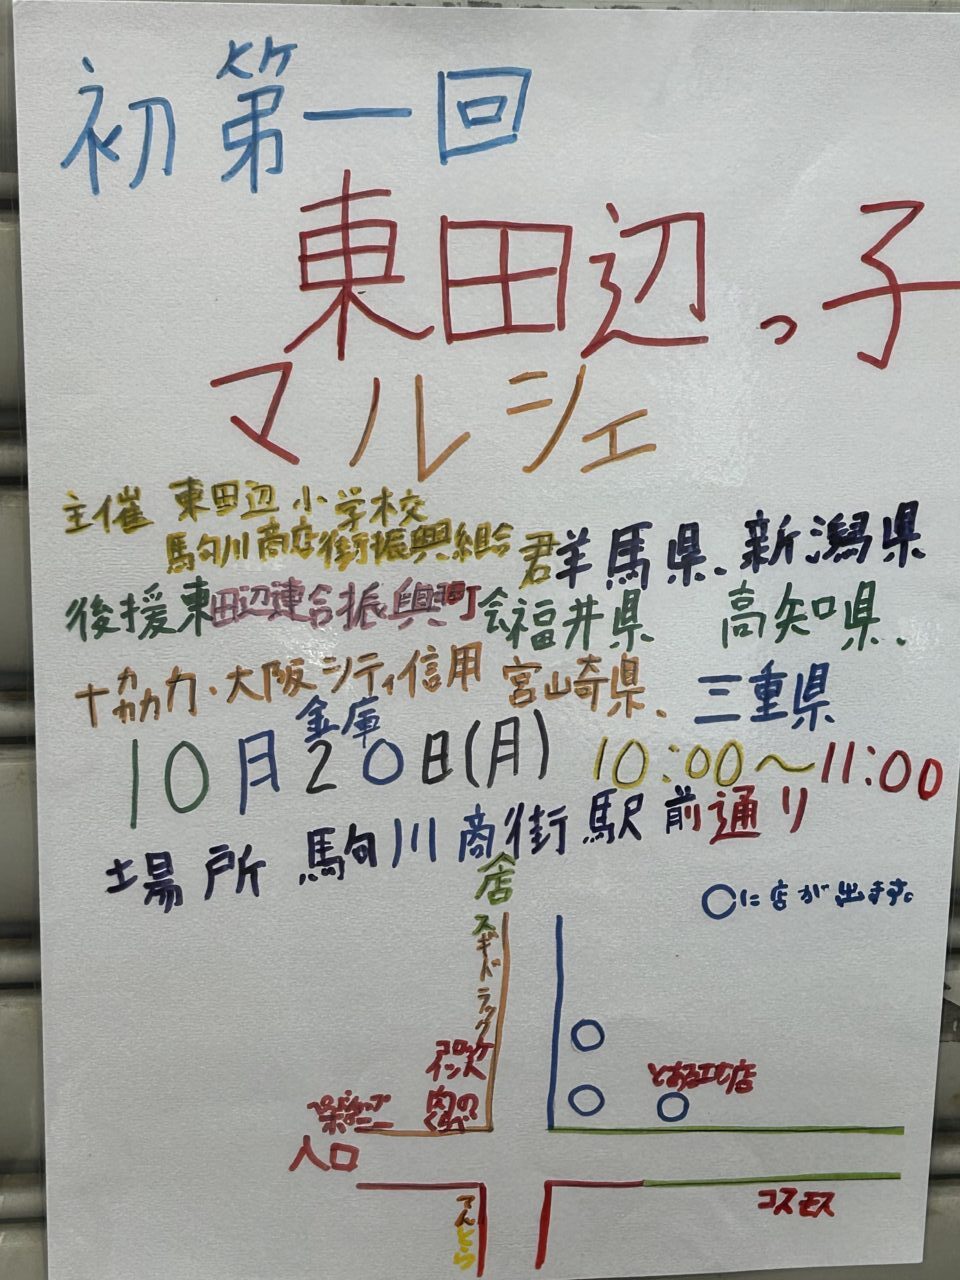 初 第一回
東田辺っ子
マルシェ
主催 東田辺小学校
駒川商店街振興組合
群馬県、新潟県
後援 東田辺連合振興町会
福井県 高知県、
協力・大阪シティ信用金庫
宮崎県、三重県
10月20日(月) 10:00～11:00
場所 駒川商店街 駅前通り
○に店が出ます。
スギドラッグ
コロッケ
肉の
入口
コスモス
てんとら